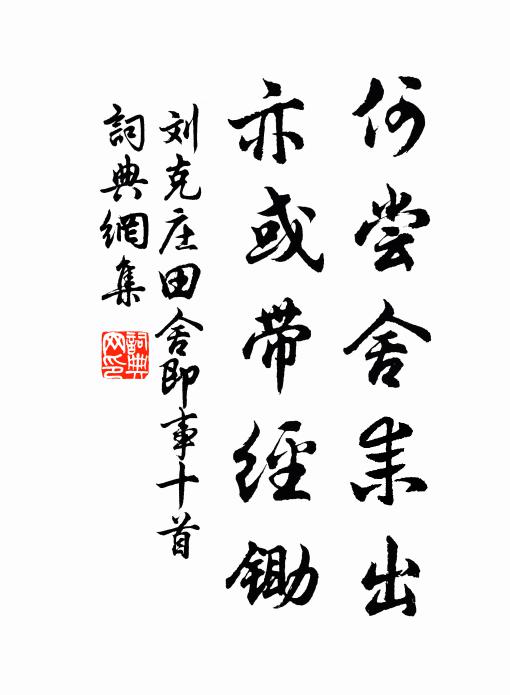 何尝舍耒出
亦或带經鋤
刘克庄田舍即事十首
詞典網集
詞典
网印